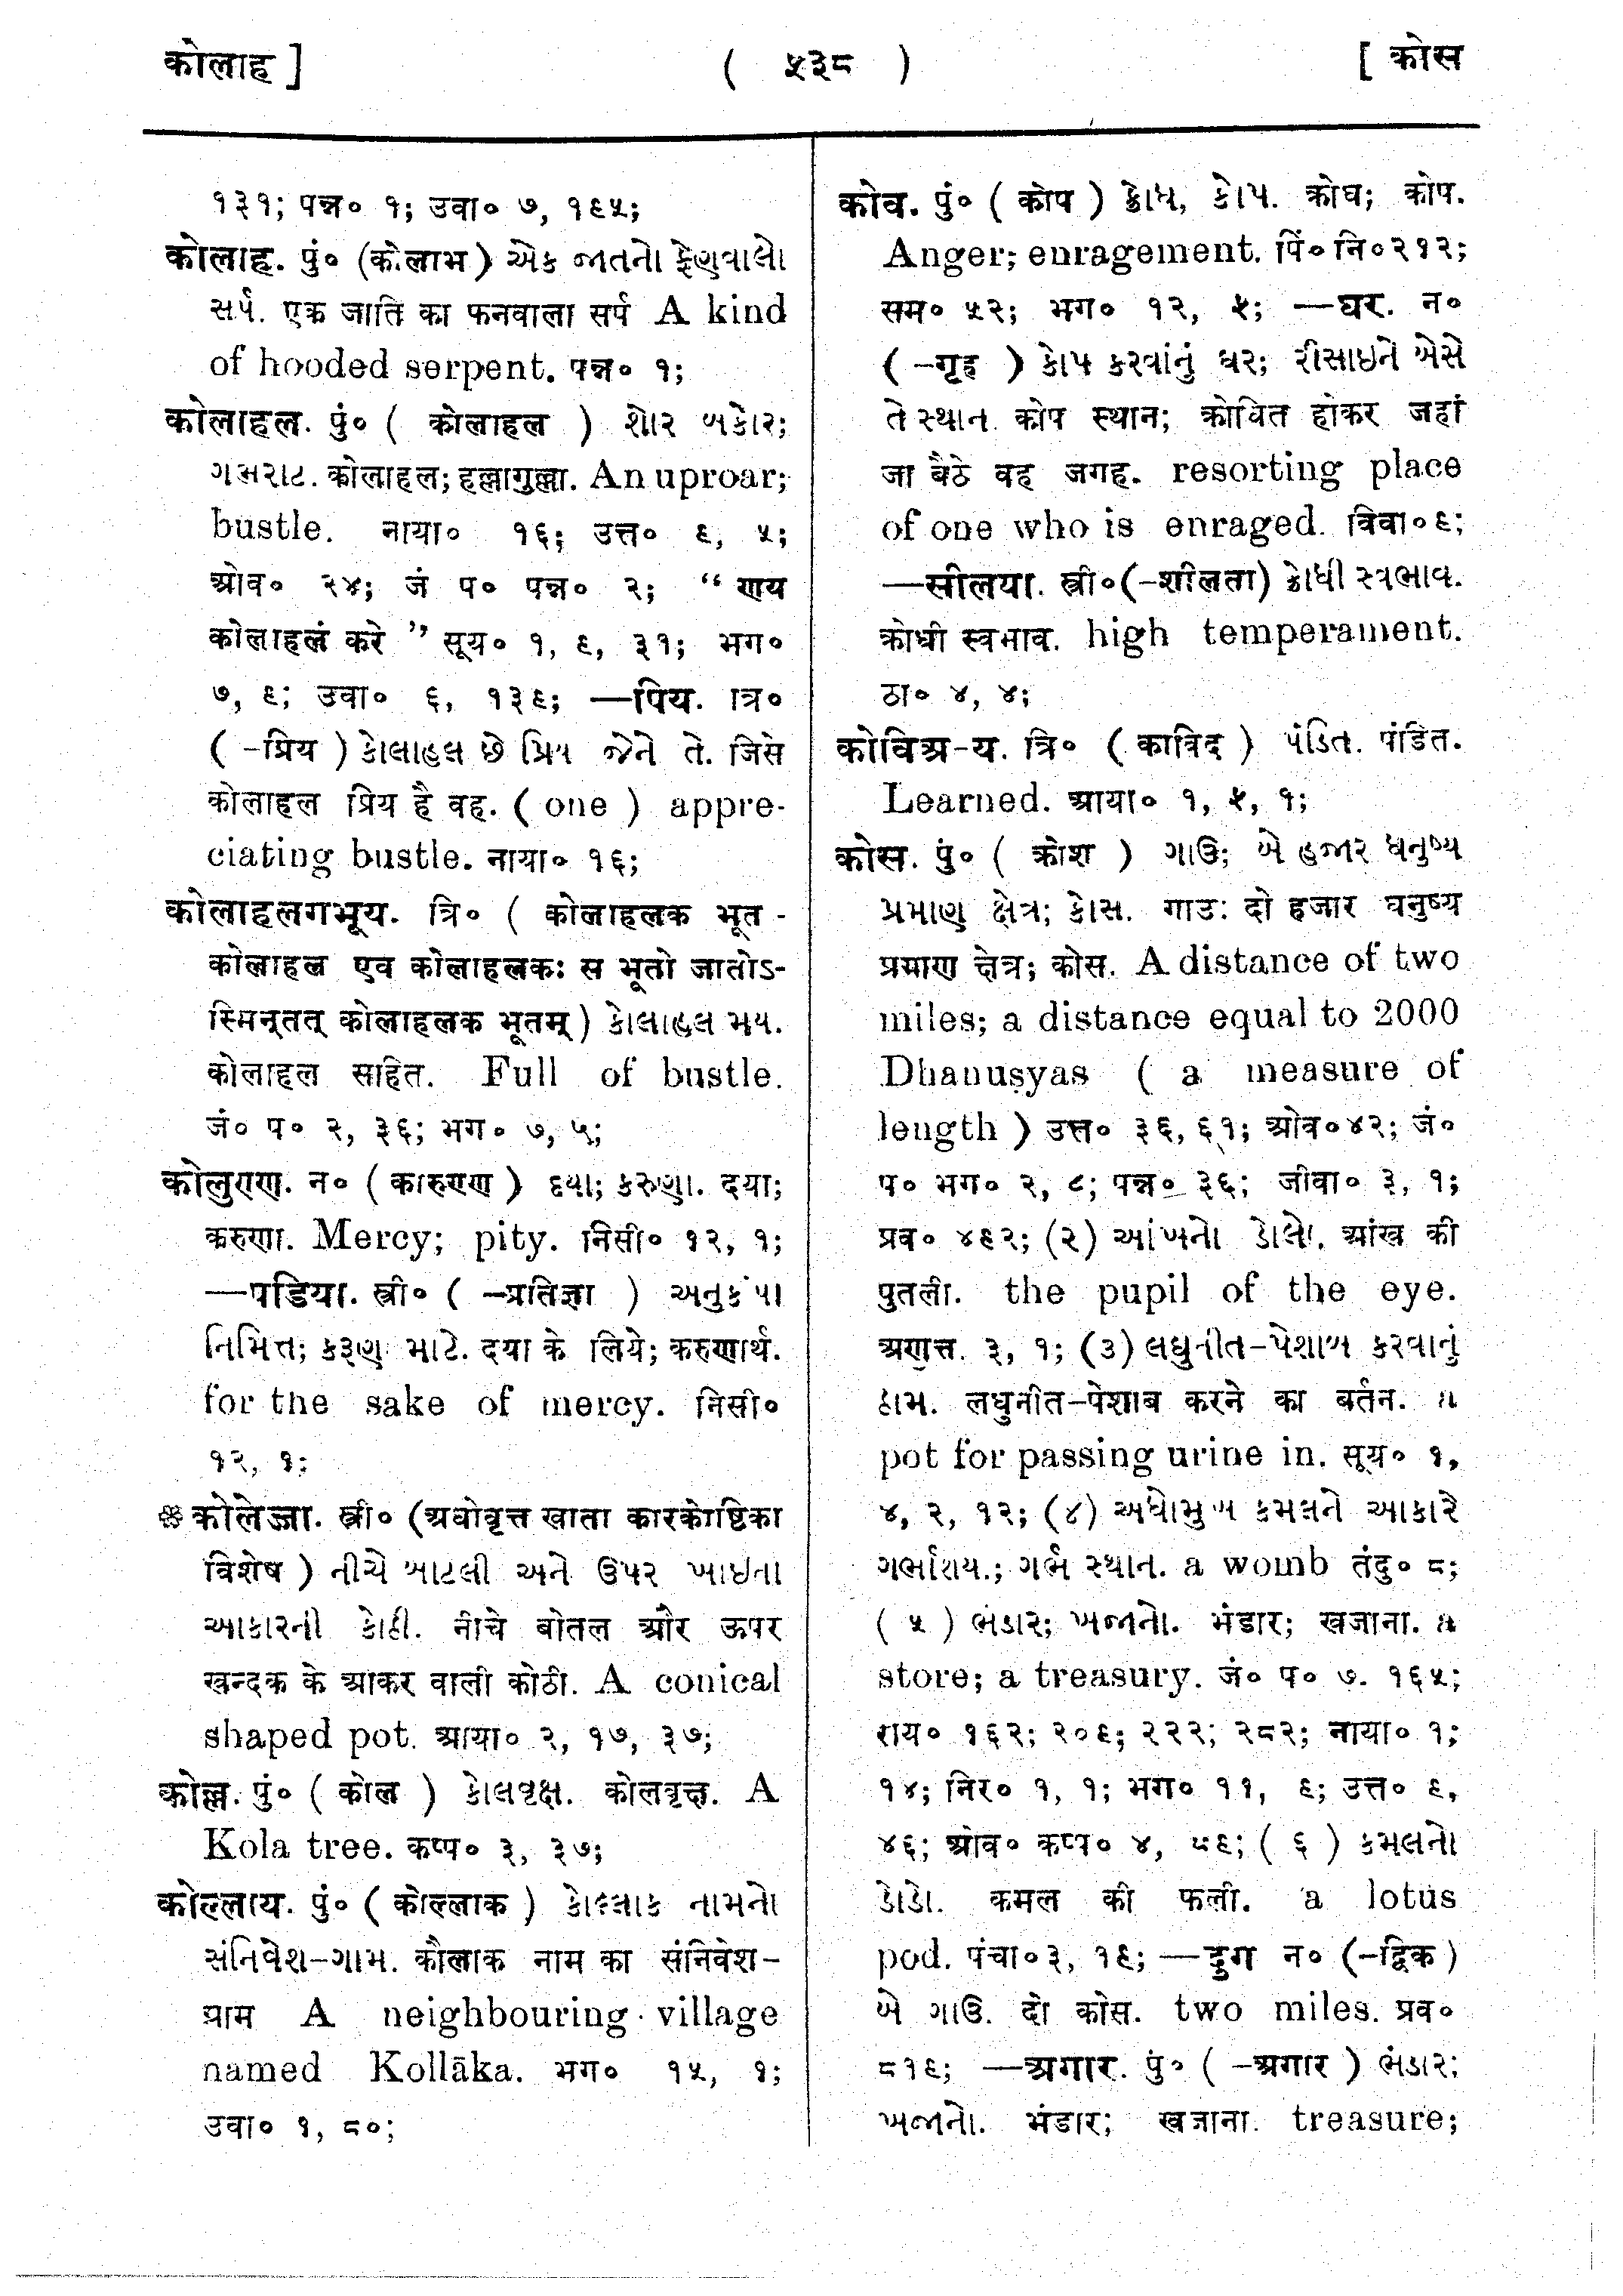 कोलाह ]
( ५३८ )
[ कोस
१३१; पन्न॰ १; उवा॰ ७, १९५;
कोलाह. पुं॰ (कोलाभ) એક જાતનો ફેણવાલો
સર્પ. एक जाति का फनवाला सर्प A kind
of hooded serpent. पन्न॰ १;
कोलाहल. पुं॰ ( कोलाहल ) શોર બકોર;
ગભરાટ. कोलाहल; हल्लागुल्ला. An uproar;
bustle. नाया॰ १६; उत्त॰ ९, ५;
ओव॰ २४; जं प॰ पन्न॰ २; “ णय
कोलाहलं करे ” सूय॰ १, ९, ३१; भग॰
७, ९; उवा॰ ६, १३९; —पिय. त्रि॰
( -प्रिय ) કોલાહલ છે પ્રિય જેને તે. जिसे
कोलाहल प्रिय है वह. ( one ) appre-
ciating bustle. नाया॰ १६;
कोलाहलगभूय. त्रि॰ ( कोलाहलक भूत -
कोलाहल एव कोलाहलकः स भूतो जातोऽ-
स्मिन्तत् कोलाहलक भूतम्) કોલાહલ મય.
कोलाहल सहित. Full of bustle.
जं॰ प॰ २, ३६; भग॰ ७, ५;
कोलुण्ण. न॰ ( कारुण्ण ) દયા; કરુણા. दया;
करुणा. Mercy; pity. निसी॰ १२, १;
—पडिया. स्त्री॰ ( -प्रतिज्ञा ) અનુકંપા
નિમિત્ત; કરૂણા માટે. दया के लिये; करुणार्थ.
for the sake of mercy. निसी॰
१२, १;
❀ कोलेज्जा. स्त्री॰ (अधोवृत्त खाता कारकोष्टिका
विशेष ) નીચે બાટલી અને ઉપર ખાઇના
આકારની કોઠી. नीचे बोतल और ऊपर
खन्दक के आकर वाली कोठी. A conical
shaped pot. आया॰ २, १७, ३७;
कोल्ल. पुं॰ ( कोल ) કોલવૃક્ષ. कोलवृक्ष. A
Kola tree. कप्प॰ ३, ३७;
कोल्लाय. पुं॰ ( कोल्लाक ) કોલ્લાક નામનો
સંનિવેશ-ગામ. कौलाक नाम का संनिवेश-
ग्राम A neighbouring village
named Kollāka. भग॰ १५, १;
उवा॰ १, ८०;
कोव. पुं॰ ( कोप ) ક્રોધ, કોપ. क्रोध; कोप.
Anger; enragement. पिं॰ नि॰ २१२;
सम॰ ५२; भग॰ १२, ५; —घर. न॰
( -गृह ) કોપ કરવાંનું ઘર; રીસાઇને બેસે
તે સ્થાન. कोप स्थान; क्रोधित होकर जहां
जा बैठे वह जगह. resorting place
of one who is enraged. विवा॰ ९;
—सीलया. स्त्री॰ (-शीलता) ક્રોધી સ્વભાવ.
क्रोधी स्वभाव. high temperament.
ठा॰ ४, ४;
कोविअ-य. त्रि॰ ( काविद ) પંડિત. पंडित.
Learned. आया॰ १, ५, १;
कोस. पुं॰ ( क्रोश ) ગાઉ; બે હજાર ધનુષ્ય
પ્રમાણ ક્ષેત્ર; કોસ. गाउ; दो हजार धनुष्य
प्रमाण क्षेत्र; कोस. A distance of two
miles; a distance equal to 2000
Dhanuṣyas ( a measure of
length ) उत्त॰ ३६, ६१; ओव॰ ४२; जं॰
प॰ भग॰ २, ८; पन्न॰ ३६; जीवा॰ ३, १;
प्रव॰ ४९२; (२) આંખનો ડોલો. आंख की
पुतली. the pupil of the eye.
अणुत्त. ३, १; (૩) લઘુનીત-પેશાબ કરવાનું
ઠામ. लघुनीत-पेशाब करने का बर्तन. a
pot for passing urine in. सूय॰ १,
४, २, १२; (४) અધોમુખ કમલને આકારે
ગર્ભાશય.; ગર્ભ સ્થાન. a womb तंदु॰ ८;
( ५ ) ભંડાર; ખજાનો. भंडार; खजाना. a
store; a treasury. जं॰ प॰ ७. १६५;
राय॰ १६२; २०९; २२२; २८२; नाया॰ १;
१४; निर॰ १, १; भग॰ ११, ९; उत्त॰ ९,
४६; ओव॰ कप्प॰ ४, ८९; ( ६ ) કમલનો
ડોડો. कमल की फली. a lotus
pod. पंचा॰ ३, १९; —दुग न॰ (-द्विक )
બે ગાઉ. दो कोस. two miles. प्रव॰
८१९; —अगार. पुं॰ ( -अगार ) ભંડાર;
ખજાનો. भंडार; खजाना. treasure;